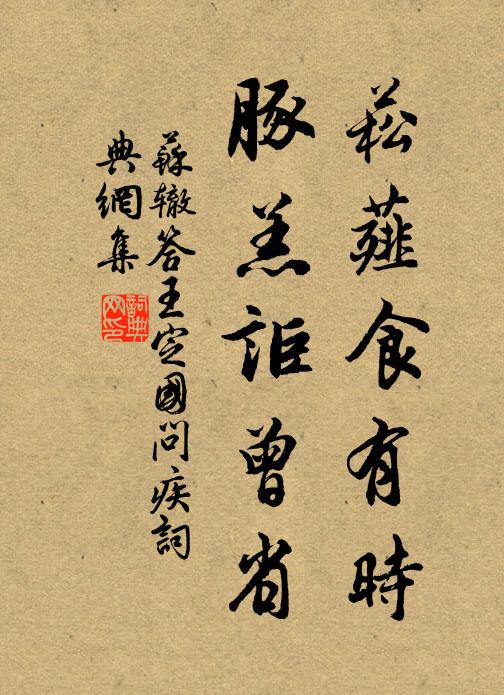 菘薤食有時
豚羔詎曾省
蘇轍答王定國問疾詞
典網集
詞典网印